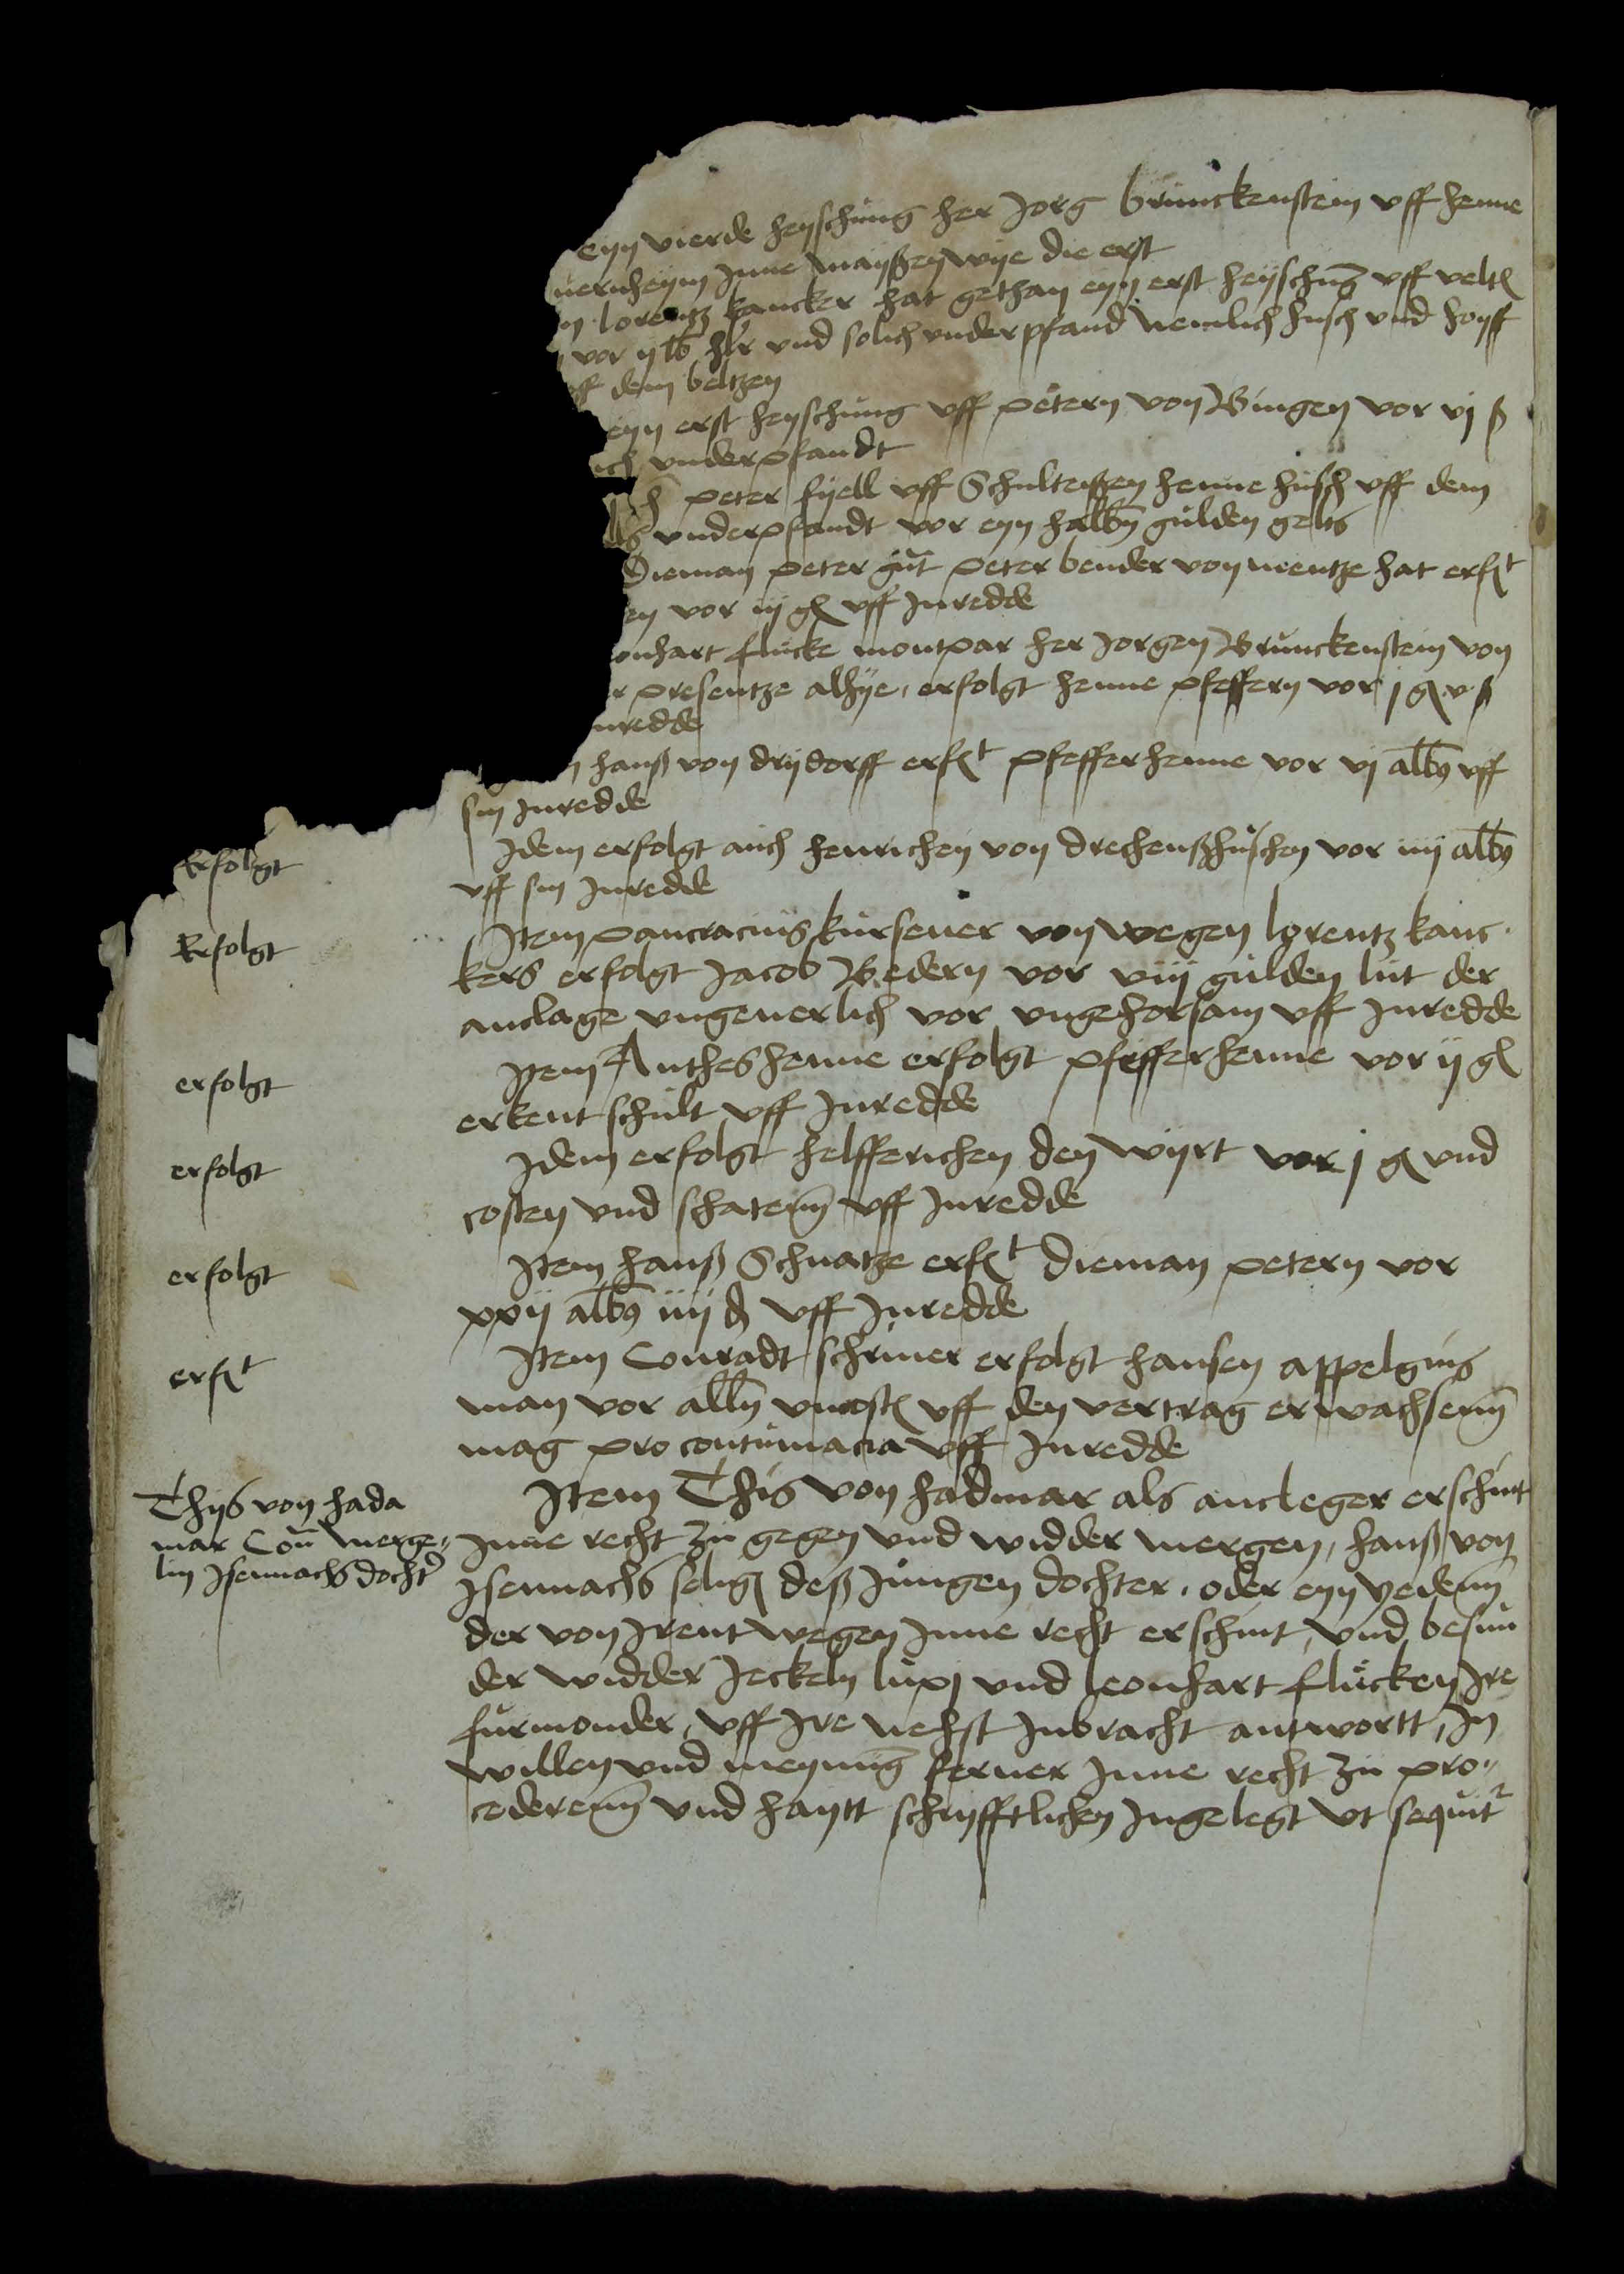 eyn vierde heyschung her Jorg brunckenstein vff henne
uernheym Jnne mayßen wye die erst
n lorentz kancker hat gethan eyn erst heyschung vff velt
vor ij lb hlr vnd solich vnderpfand Nemlich husch vnd hoyff
ff dem beltzen
eyn erst heyschung vff petern von Bingen vor vj ß
ich vnderpfandt
peter fyell vff Schulteßen henne husch vff dem
ls vnderpfandt vor eyn halbn gulden gelts
Dieman peter gnt peter bender von mentze hat erft
en vor iij gl vff Jnredde
onhart flucke montpar her Jorgen Brunckenstein von
r presentze alhye erfolgt henne pfeffern vor j gl v ß
nredde
hanß von drydorff erft pfefferhenne vor vj albus vff
sin Jnredde
Erfolgt
Jdem erfolgt auch henrichen von drechenßhuschen vor iiij albus
vff sin Jnredde
Erfolgt
Jtem pancracius kursener von wegen lorentz kanc
kers erfolgt Jacob Bedern vor viij gulden lut der
anclage vngeuerlich vor vngehorsam vff Jnredde
erfolgt
Jtem Anthes henne erfolgt pfefferhenne vor ij gl
erkent schult vff Jnredde
erfolgt
Jdem erfolgt helfferichen den wyrt vor j gl vnd
costen vnd schaten vff Jnredde
erfolgt
Jtem hanß Schnatze erft Dieman petern vor
xxij albus iiij d vff Jnredde
erft
Jtem Conradt schriner erfolgt hansen appelgus
man vor alln vncost vff den vertrag erwachsenn
mag pro contumacia vff Jnredde
Thys von hada
mar Con merge
lin Jsennachs docht
Jtem This von hadmar als ancleger erschint
Jnne recht zu gegen vnd widder mergen, hanß von
Jsennachs selig deß Jungen dochter, oder eyn yeden
der von Jrent wegen Jnne recht erschint, vnd besun
der widder Jeckeln lupi vnd leonhart flucken Jre
furmonder, vff Jre nehst Jnbracht antwortt, Jn
willen vnd meynung ferner Jnne recht zu pro
cederenn vnd haytt schryfftlichen Jngelegt vt sequit